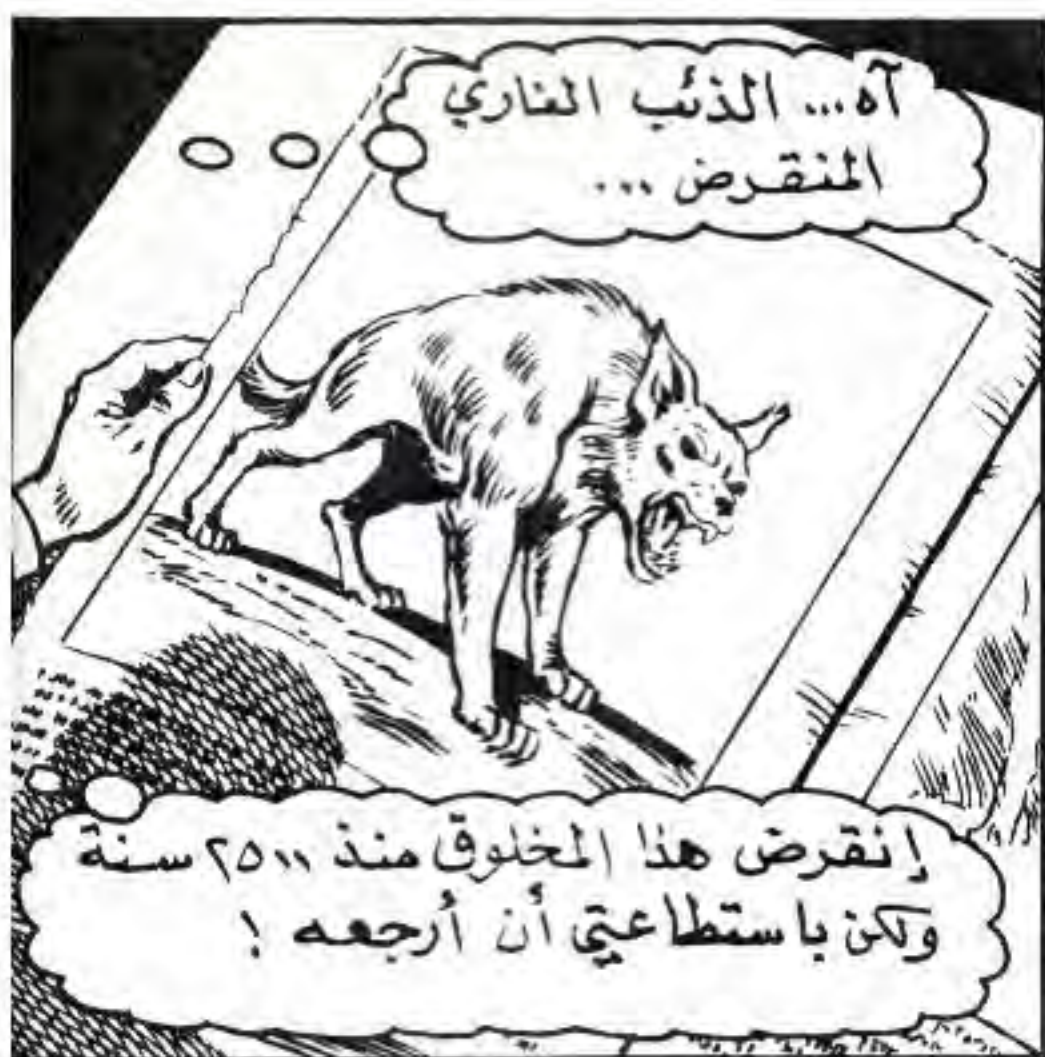 آه... الذئب الناري
المنقرض ...
إنقرض هذا المخلوق منذ ٢٥٠٠ سنة
ولكن باستطاعتي أن أرجعه !